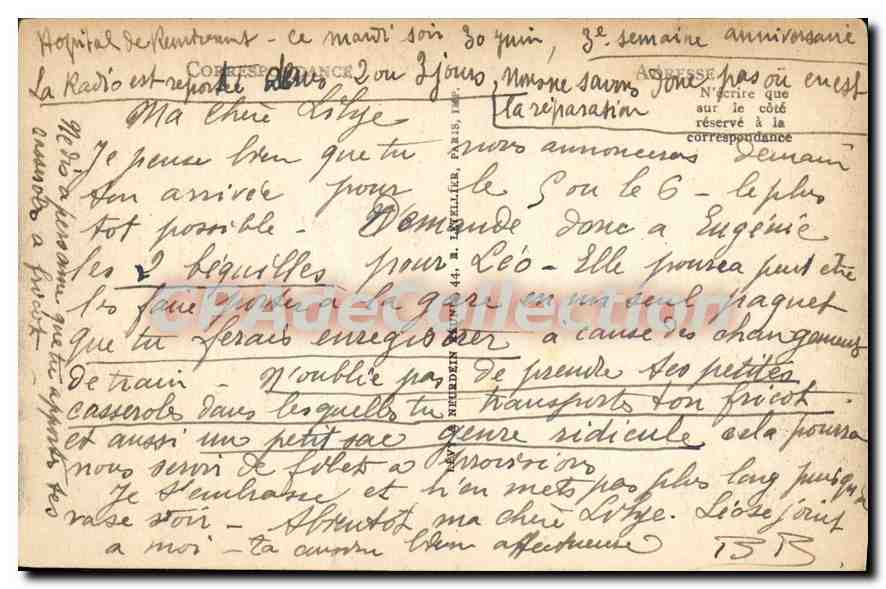 Hopital de Remiremont - ce mardi soir 30 juin, 3e semaine anniversaire
CORRESPONDANCE
ADRESSE
La Radio est reportée dans 2 ou 3 jours, nous ne savons donc pas où en est
la réparation
N'écrire que
sur le côté
réservé à la
correspondance
Ma chère
Je pense bien que tu nous annonceras demain
ton arrivée pour le 5 ou le 6 - le plus
tot possible - Demande donc a Eugénie
les 2 béquilles pour Léo - Elle pourra peut etre
les faire porter a la gare en un seul paquet
que tu ferais enregistrer a cause des changements
de train - N'oublie pas de prendre tes petites
casseroles dans lesquelles tu transportes ton fricot.
et aussi un petit sac genre ridicule cela pourra
nous servir de filet a provisions
Je t'embrasse et n'en mets pas plus long puisqu'on
va se voir - A bientot ma chère Léo se joint
a moi - ta cousine bien affectueuse BB
Ne dis a personne que tu apportes tes
casseroles a fricot -
LÉVY & NEURDEIN RÉUNIS, 44, R. LETELLIER, PARIS, IMP.
CPAdeCollection